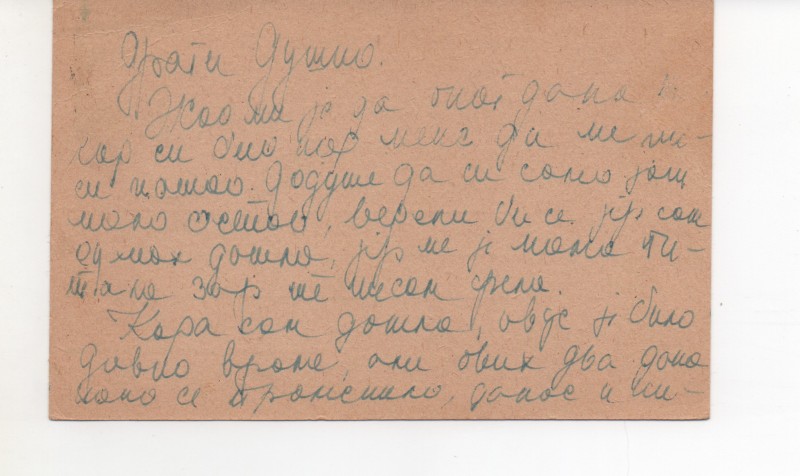 Драги Душко.
Жао ми је да оног дана
кад си био код мене да ме ни-
си нашао. Додуше да си само још
мало остао, верели би се јер сам
одмах дошла, јер ме је мама пи-
тала зар те нисам срела.
Када сам дошла, овде је било
дивно време, али ових два дана
мало се променило, данас и ки-